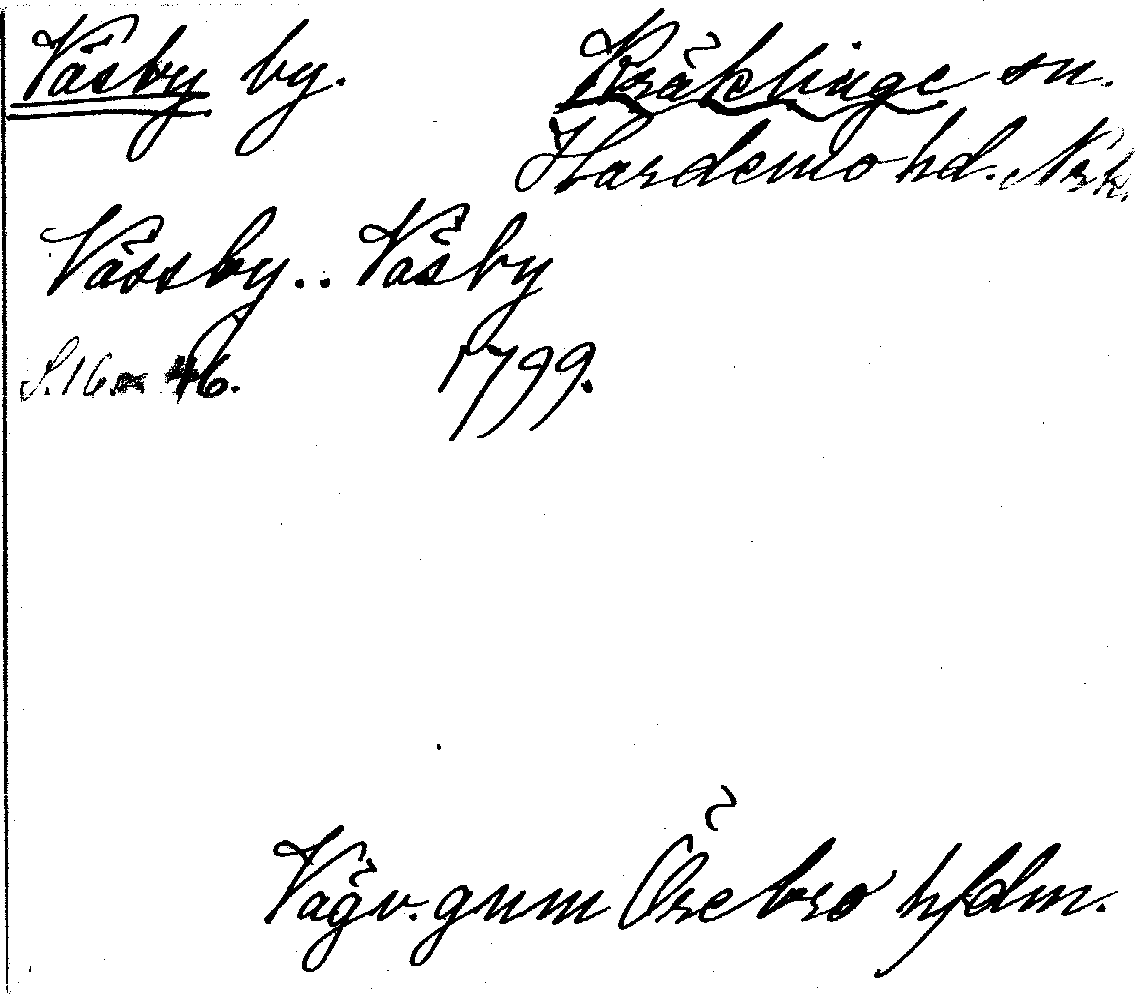 Väsby by. Kräklinge sn.
Hardemo hd. Nrk.
Vässby.. Väsby
S. 16 46. 1799.
Vägv. gnm Örebro hfdm.